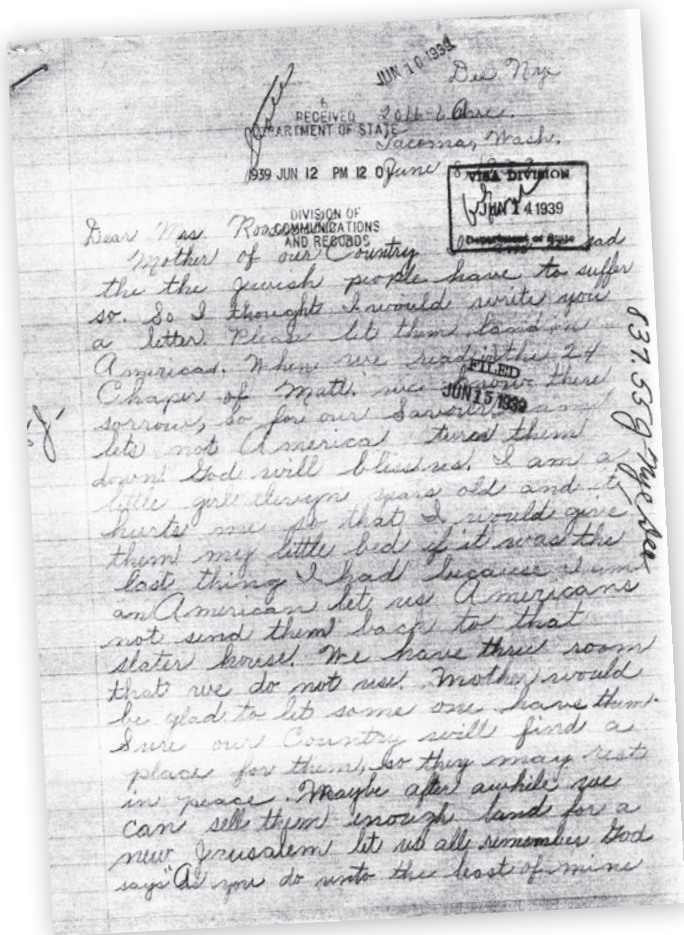 JUN 10 1939
Dee Nye
RECEIVED
DEPARTMENT OF STATE
2011-6 Ave.
Tacoma, Wash.
1939 JUN 12 PM 12 0
June 8
VISA DIVISION
JUN 14 1939
Department of State
DIVISION OF
COMMUNICATIONS
AND RECORDS
Dear Mrs.
Mother of our Country
the the Jewish people have to suffer
so. So I thought I would write you
a letter. Please let them land in
America. When we read in the 24
Chaper of Matt. we know there
sorrow, so for our Saviours
lets not America turn them
down God will bless us. I am a
little girl elevyn years old and it
hurts me so that I would give
them my little bed if it was the
last thing I had because I am
an American let us Americans
not send them back to that
slater house. We have three room
that we do not use. Mother would
be glad to let some one have them.
Sure our Country will find a
place for them, so they may rest
in peace. Maybe after awhile we
can sell them enough land for a
new Jerusalem let us all remember God
says "As you do unto the least of mine
FILED
JUN 15 1939
837.55